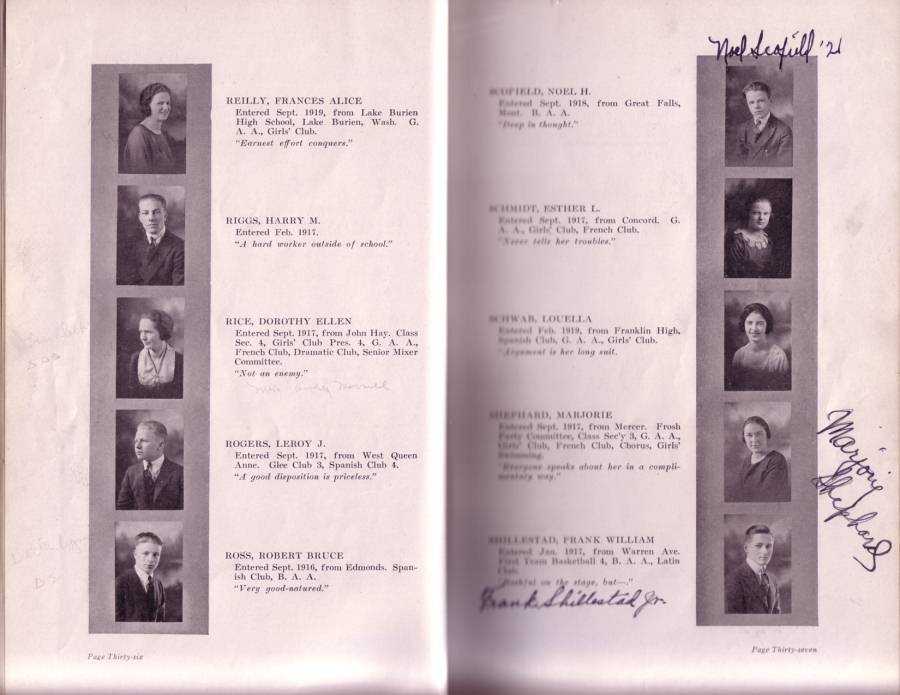 REILLY, FRANCES ALICE
Entered Sept. 1919, from Lake Burien
High School, Lake Burien, Wash. G.
A. A., Girls' Club.
"Earnest effort conquers."
RIGGS, HARRY M.
Entered Feb. 1917.
"A hard worker outside of school."
RICE, DOROTHY ELLEN
Entered Sept. 1917, from John Hay. Class
Sec. 4, Girls' Club Pres. 4, G. A. A.,
French Club, Dramatic Club, Senior Mixer
Committee.
"Not an enemy."
ROGERS, LEROY J.
Entered Sept. 1917, from West Queen
Anne. Glee Club 3, Spanish Club 4.
"A good disposition is priceless."
ROSS, ROBERT BRUCE
Entered Sept. 1916, from Edmonds. Span-
ish Club, B. A. A.
"Very good-natured."
Page Thirty-six
Noel Scofield '21
SCOFIELD, NOEL H.
Entered Sept. 1918, from Great Falls,
Mont. B. A. A.
"Deep in thought."
SCHMIDT, ESTHER L.
Entered Sept. 1917, from Concord. G.
A. A., Girls' Club, French Club.
"Never tells her troubles."
SCHWAB, LOUELLA
Entered Feb. 1919, from Franklin High,
Spanish Club, G. A. A., Girls' Club.
"Argument is her long suit.
SHEPHARD, MARJORIE
Entered Sept. 1917, from Mercer. Frosh
Party Committee, Class Sec'y 3, G. A. A.,
Girls' Club, French Club, Chorus, Girls'
Swimming.
"Everyone speaks about her in a compli-
mentary way."
Marjorie
Shephard
SHILLESTAD, FRANK WILLIAM
Entered Jan. 1917, from Warren Ave.
First Team Basketball 4, B. A. A., Latin
Club.
"Bashful on the stage, but—."
Frank Shillestad Jr.
Page Thirty-seven